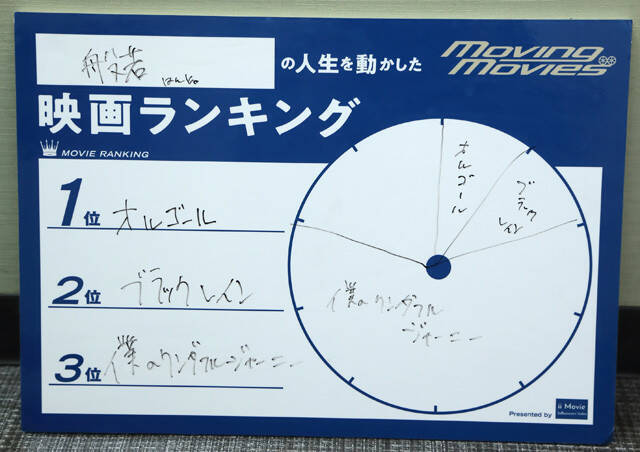 般若 はんにゃ
の人生を動かした
Moving Movies
映画ランキング
MOVIE RANKING
1位 オルゴール
2位 ブラックレイン
3位 僕のワンダフルジャーニー
オルゴール
ブラック
レイン
僕のワンダフル
ジャーニー
Presented by
ii Movie